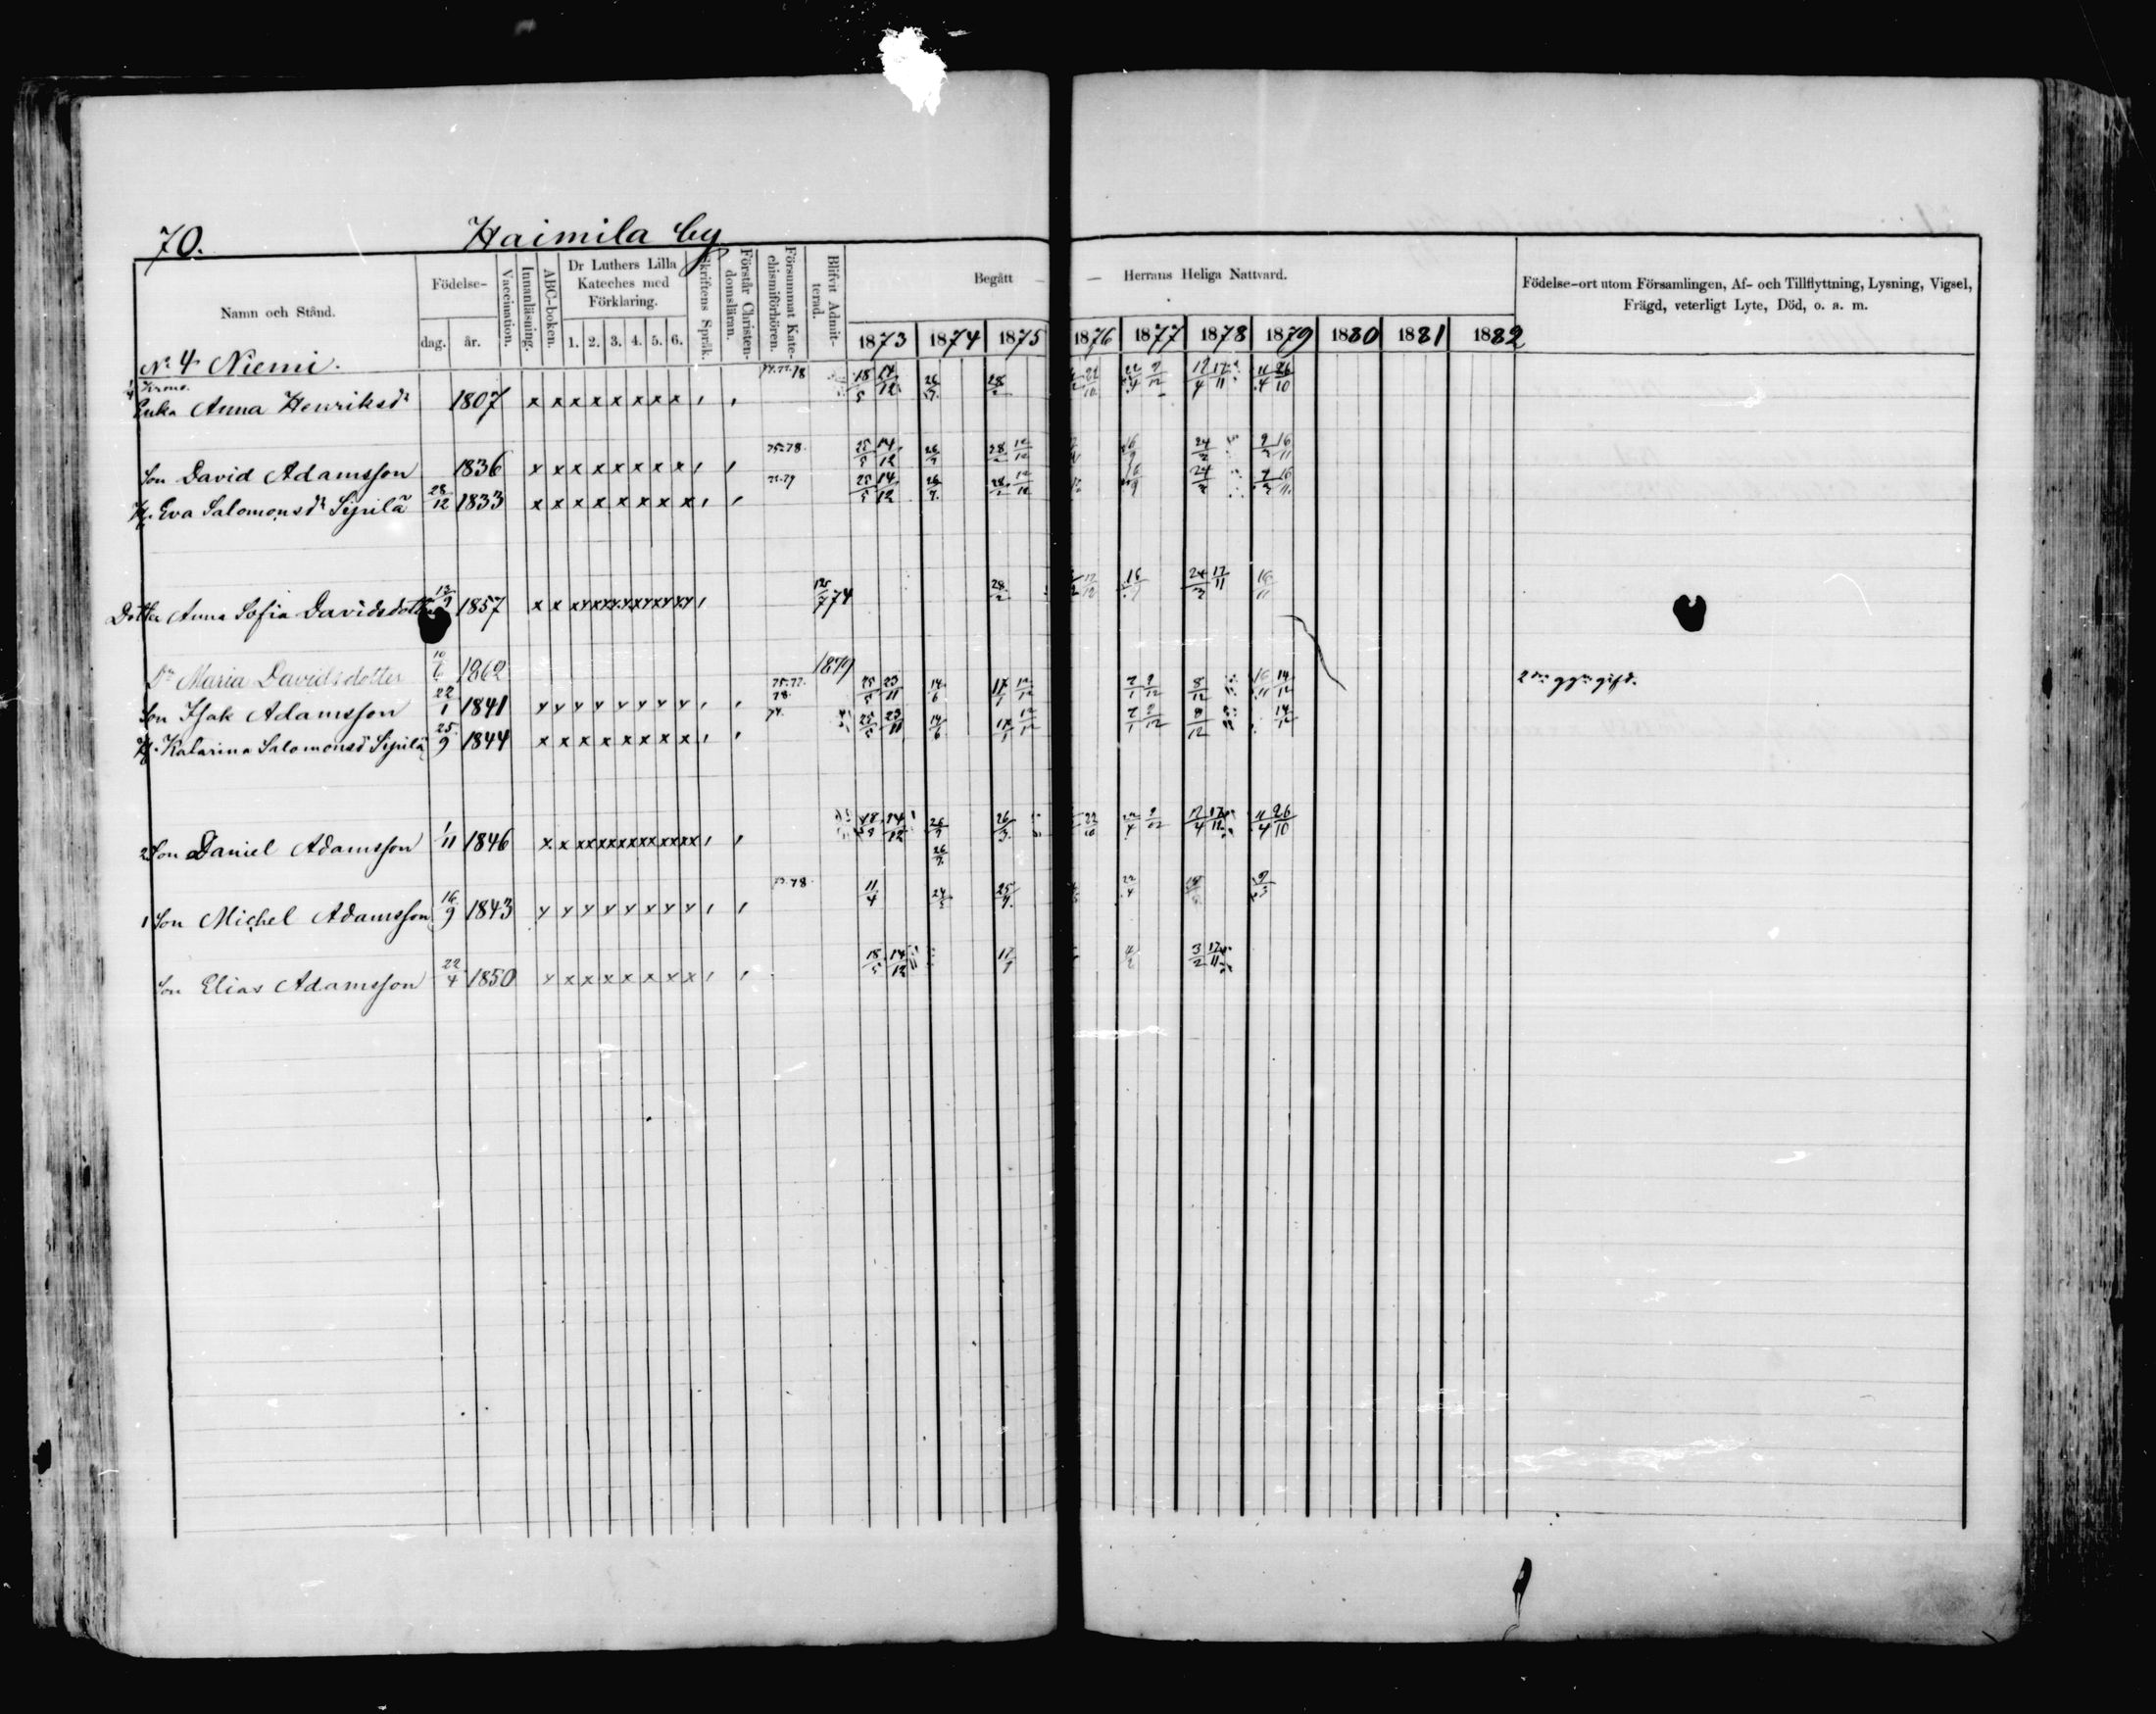 70. Haimila by
Namn och Stånd. Födelse- dag. år. Vaccination. Innanläsning. ABC-boken. Dr Luthers Lilla Kateches med Förklaring. 1. 2. 3. 4. 5. 6. Skriftens Språk. Förstår Christendomsläran. Försummat Katechismiförhören. Blifvit Admitterad. Begått — — Herrans Heliga Nattvard. Födelse-ort utom Församlingen, Af- och Tillflyttning, Lysning, Vigsel, Frägd, veterligt Lyte, Död, o. a. m.
1873 1874 1875 1876 1877 1878 1879 1880 1881 1882
No 4 Niemi.
Krono.
Enka Anna Henriksdr 1807 x x x x x x x x 18/5 14/12 26/7 28/2 22/10 22/4 9/12 12/4 17/11 11/4 26/10
Son David Adamsson 1836 x x x x x x x x 75.78. 25/5 14/12 26/7 28/2 12/12 16/9 24/2 9/3 16/11
H. Eva Salomonsdr Sipilä 28/12 1833 x x x x x x x x 25/5 14/12 26/7 28/2 12/12 16/9 24/2 9/3 16/11
Dotter Anna Sofia Davidsdotter 1857 74 28/2 12/12 16/9 24/3 17/11 16/11
Dr Maria Davidsdotter 10/6 1862 1879
Son Isak Adamsson 22/1 1841 x x x x x x x x 75.77.78. 25/5 23/11 14/6 17/1 12/12 7/1 9/12 8/12 16/11 14/12 2dra ggn gift.
H. Katarina Salomonsdr Sipilä 25/9 1844 x x x x x x x x 74. 25/5 23/11 14/6 17/1 12/12 7/1 9/12 8/12 14/12
2 Son Daniel Adamsson 1/11 1846 18/5 14/12 26/7 26/3 22/10 22/4 9/12 12/4 17/11 11/4 26/10
26/7
1 Son Michel Adamsson 16/9 1843 x x x x x x x x 11/4 24/5 25/7 22/4 9/3
Son Elias Adamsson 22/4 1850 x x x x x x x x 18/5 14/12 11/7 4/2 3/2 17/11